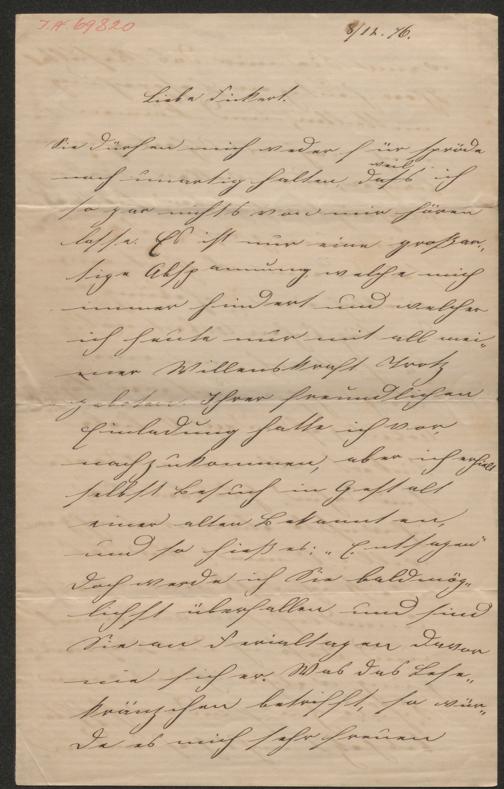 I.N. 69820
8/12. 76.
Liebe Fickert.
Sie dürfen mich weder für spröde
noch unartig halten, weil daß ich
so gar nichts von mir hören
lasse. Es ist nur eine großar-
tige Abspannung, welche mich
immer hindert und welcher
ich heute nur mit all mei-
ner Willenskraft Trotz
geboten. Ihrer freundlichen
Einladung hatte ich vor,
nachzukommen, aber ich erhielt
selbst Besuch in Gestalt
einer alten Bekannten,
und so hieß es: „Entsagen"
Doch werde ich Sie baldmög-
lichst überfallen und sind
Sie an Ferialtagen davor
nie sicher. Was das Lese-
kränzchen betrifft, so wür-
de es mich sehr freuen